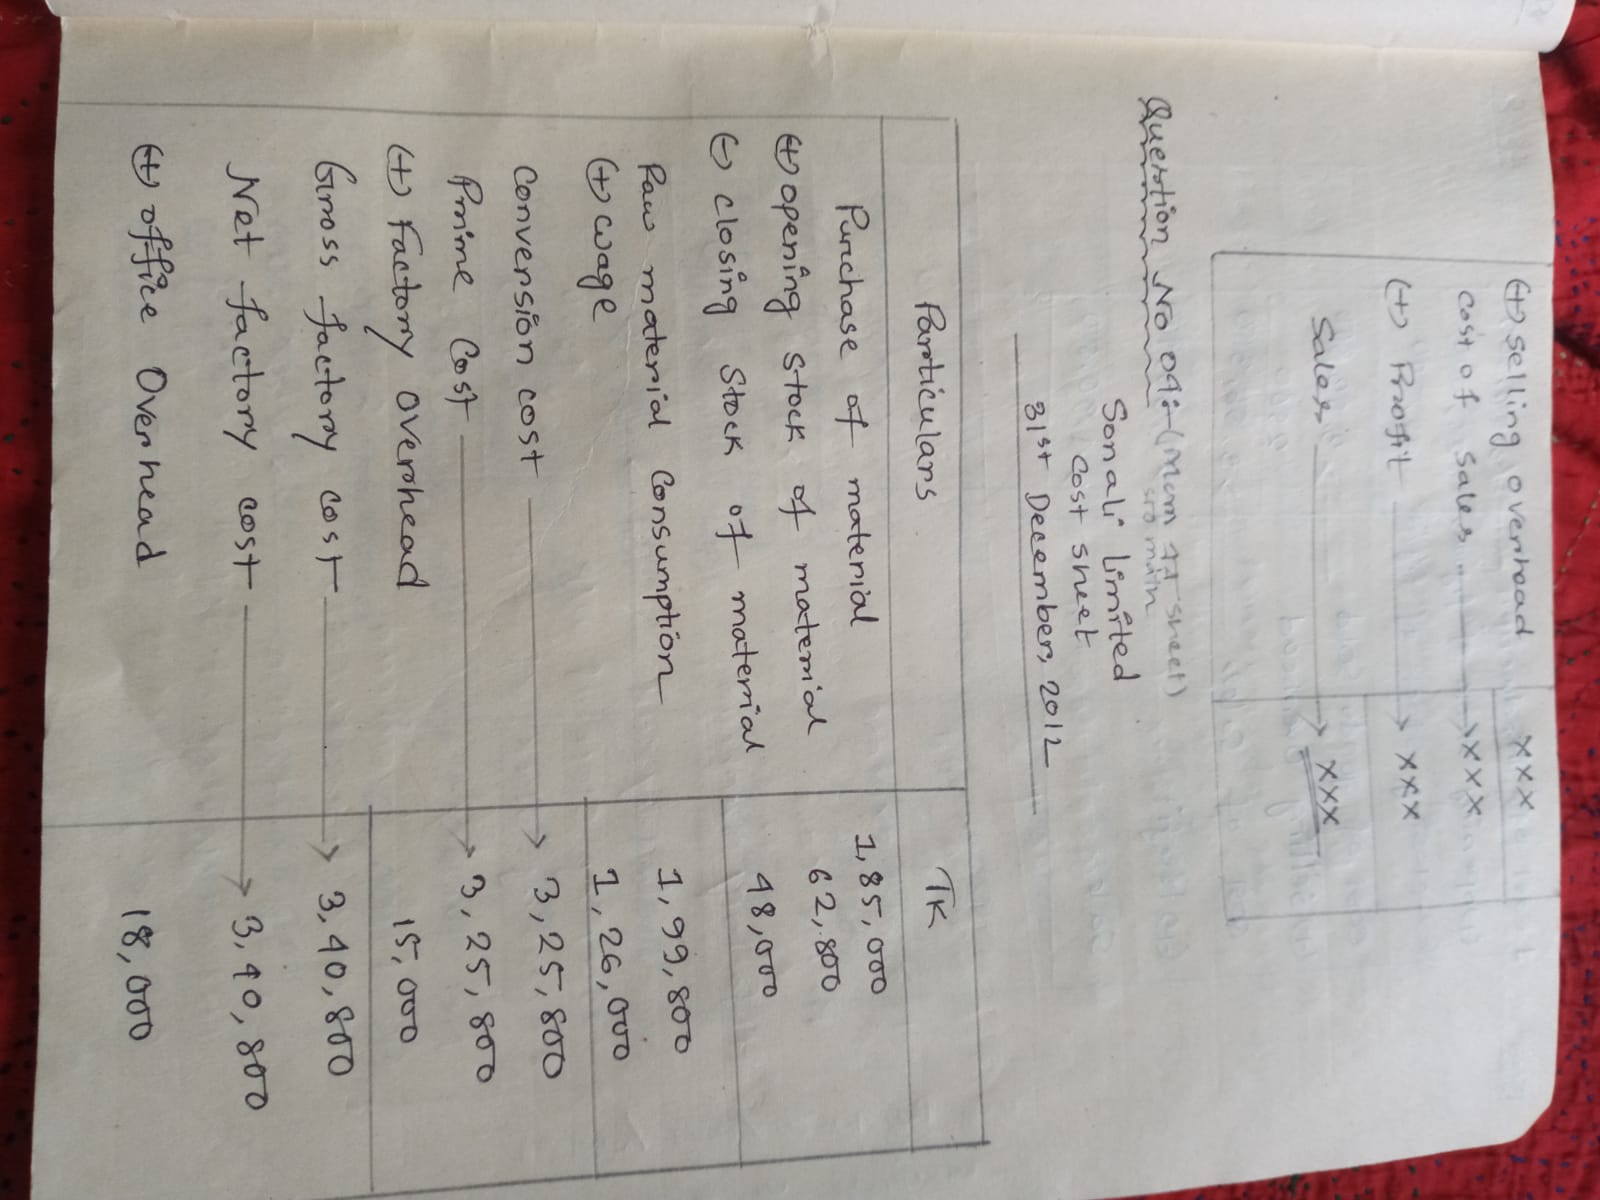 (+) selling overhead xxx
cost of sales → xxx
(+) Profit → xxx
Sales → xxx
Question No 04:- (Mam sheet)
Sonali limited
cost sheet
31st December, 2012
Particulars TK
Purchase of material 1,85,000
(+) opening stock of material 62,800
(-) closing stock of material 48,000
Raw material consumption 1,99,800
(+) wage 1,26,000
Conversion cost → 3,25,800
Prime cost → 3,25,800
(+) Factory overhead 15,000
Gross factory cost → 3,40,800
Net factory cost → 3,40,800
(+) office overhead 18,000